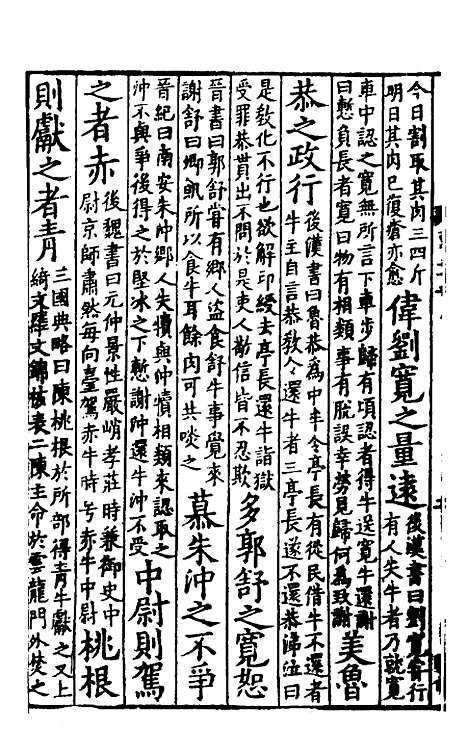 今日割取其肉三四斤
明日其肉已復瘡亦愈
偉劉寬之量遠
後漢書曰劉寬嘗行
有人失牛者乃就寬
車中認之寬無所言下車步歸有頃認者得牛送寬牛還謝
曰慙負長者寬曰物有相類事有脫誤幸勞見歸何爲致謝
美魯
恭之政行
後漢書曰魯恭爲中牟令亭長有從民借牛不還者
牛主自言恭敎令還牛者三亭長遂不還恭歸位曰
是敎化不行也欲解印綬去亭長還牛詣獄
受罪恭貰出不問於是吏人勸信皆不忍欺
多郭舒之寬恕
晉書曰郭舒嘗有鄉人盜食舒牛事覺來
謝舒曰卿飢所以食牛耳餘肉可共啖之
慕朱沖之不爭
晉紀曰南安朱沖鄉人失犢與沖犢相類來認取之
沖不與爭後得之於堅冰之下慙謝沖還牛沖不受
中尉則駕
之者赤
後魏書曰元仲景性嚴峭孝莊時兼御史中
尉京師肅然每向臺駕赤牛時号赤牛中尉
桃根
則獻之者青
三國典略曰陳桃根於所部得青牛獻之又上
綺文羅文錦被表二陳主命於雲龍門外焚之